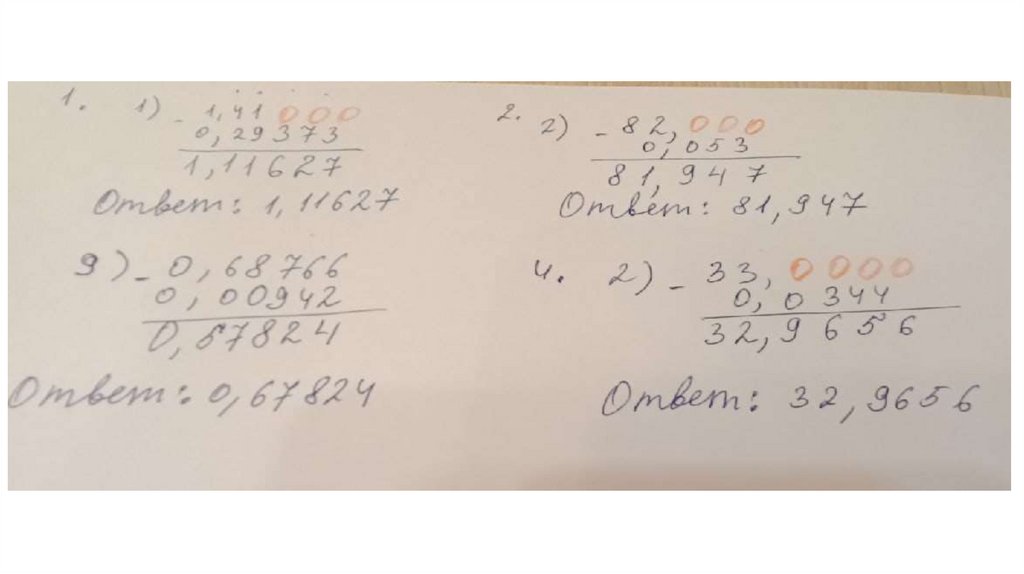 1. 1) - 1,41000
0,29373
1,11627
Ответ: 1,11627
9) - 0,68766
0,00942
0,67824
Ответ: 0,67824
2. 2) - 82,000
0,053
81,947
Ответ: 81,947
4. 2) - 33,0000
0,0344
32,9656
Ответ: 32,9656